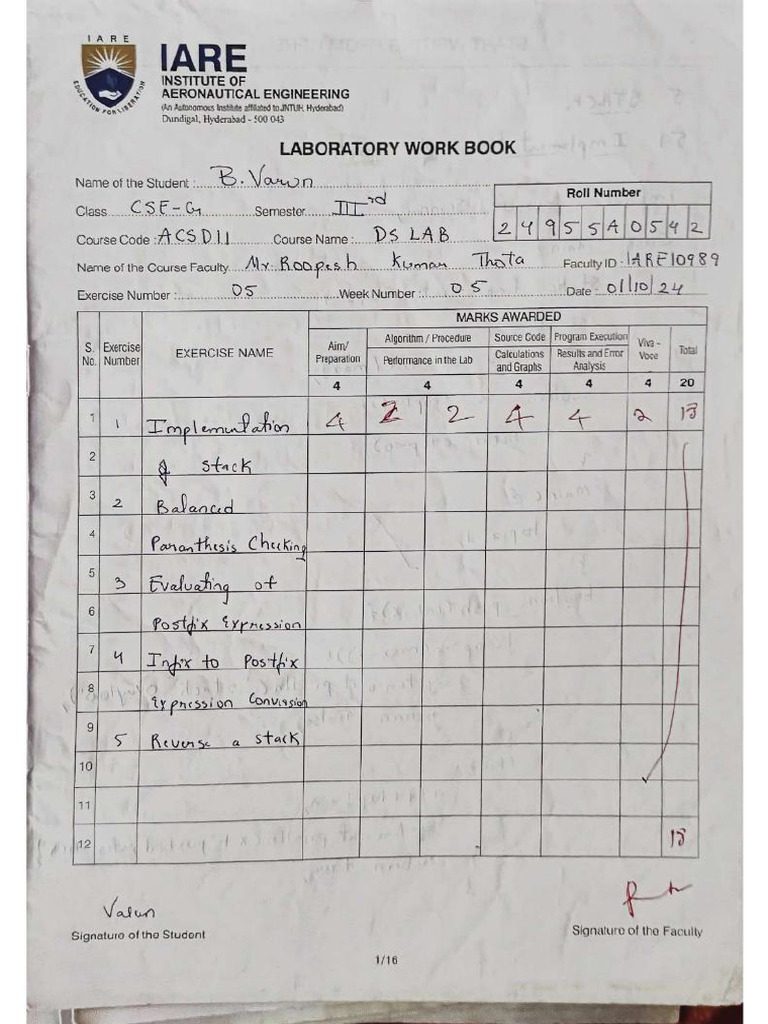 IARE
EDUCATION FOR LIBERATION
IARE
INSTITUTE OF
AERONAUTICAL ENGINEERING
(An Autonomous Institute affiliated to JNTUH, Hyderabad)
Dundigal, Hyderabad - 500 043
LABORATORY WORK BOOK
Name of the Student : B. Varun
Roll Number
Class CSE-G Semester IIIrd
24955A0542
Course Code : ACSD11 Course Name : DS LAB
Name of the Course Faculty Mr Roopesh Kumar Thota Faculty ID : IARE10989
Exercise Number : 05 Week Number : 05 Date : 01/10/24
MARKS AWARDED
S. No. Exercise Number EXERCISE NAME Aim/ Preparation Algorithm / Procedure Source Code Program Execution Viva - Voce Total
Performance in the Lab Calculations and Graphs Results and Error Analysis
4 4 4 4 4 20
1 1 Implementation 4 2 2 4 4 2 18
2 of stack
3 2 Balanced
4 Paranthesis Checking
5 3 Evaluating of
6 Postfix Expression
7 4 Infix to Postfix
8 Expression Convission
9 5 Reverse a stack
10
11
12 18
Varun
Signature of the Student Signature of the Faculty
1/16